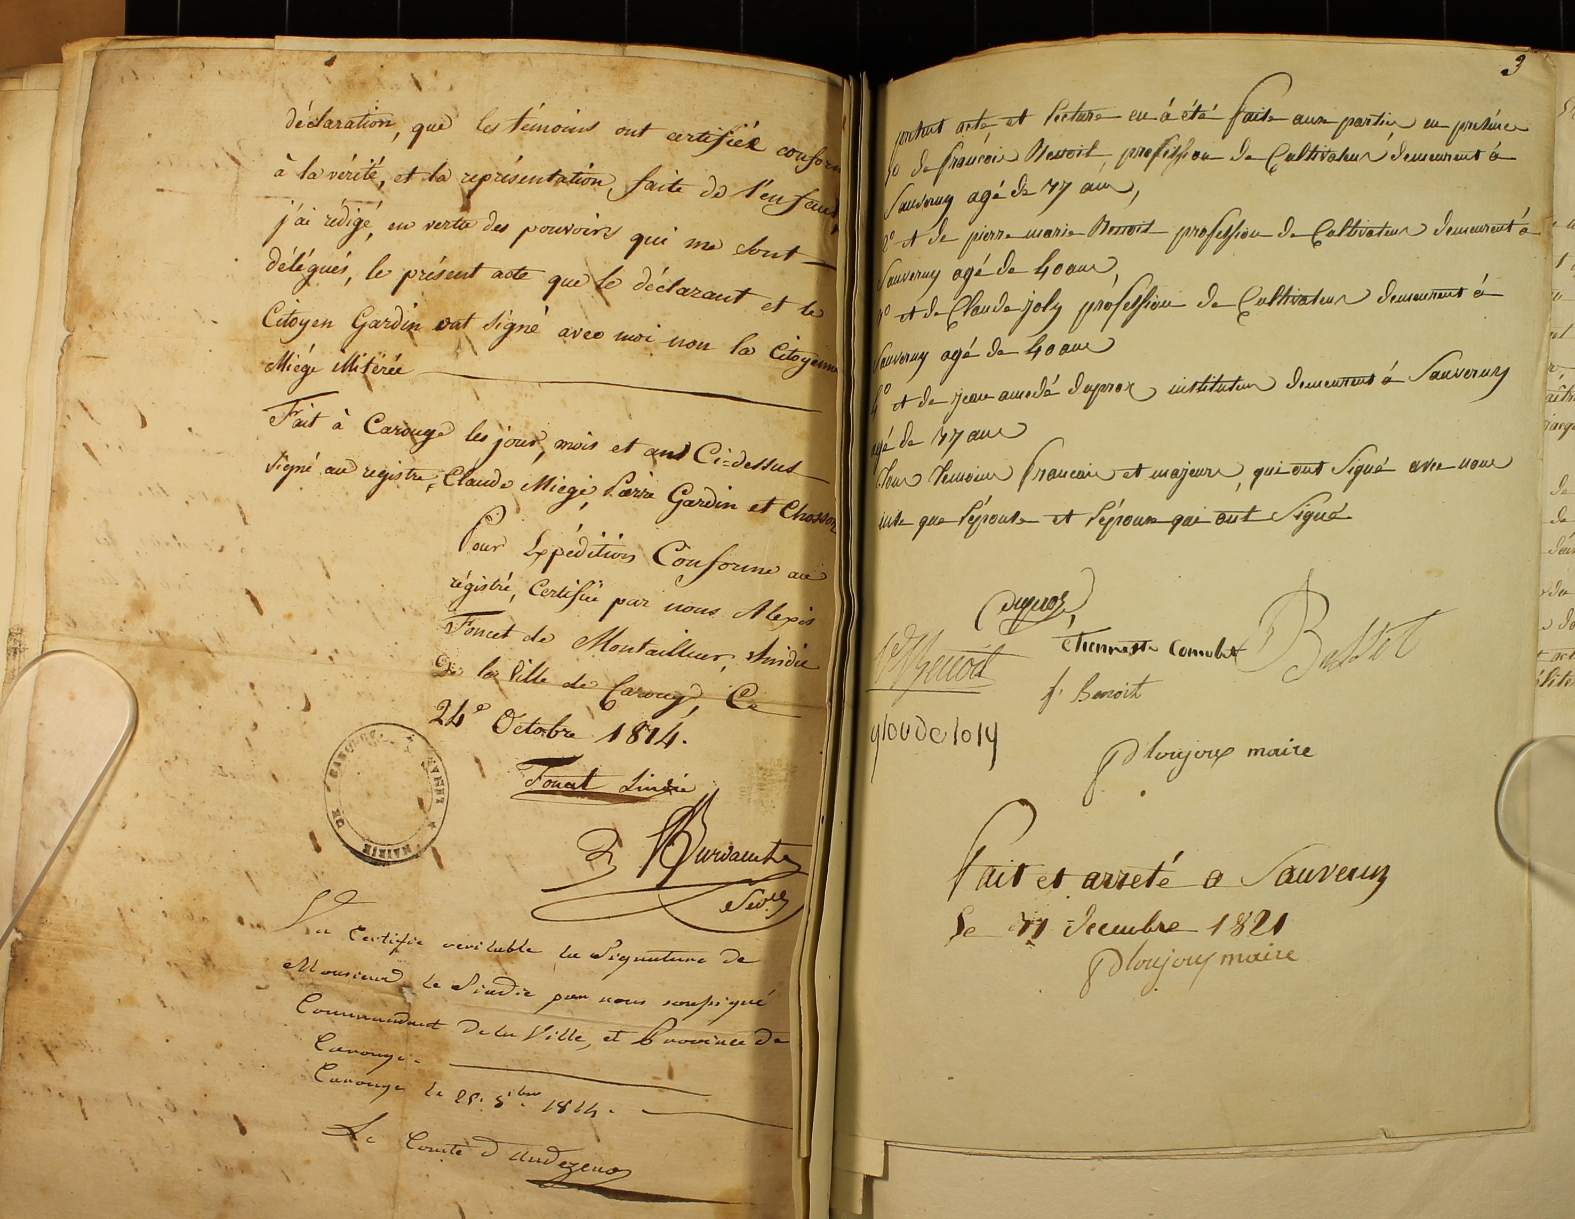 déclaration, que les témoins ont certifiée conform
à la vérité, et la représentation, faite de l'enfant,
j'ai rédigé, en vertu des pouvoirs qui me sont
délégués, le présent acte que le déclarant et le
Citoyen Gardin ont signé avec moi non la Citoyenne
Miége
Fait à Carouge les jour, mois et an Ci-dessus
signé au registre, Claude Miége, Pierre Gardin et Chosson
Pour Expédition Conforme au
régistré, Certifié par nous Alexis
Foncet de Montailleur, Sindic
de la Ville de Carouge, Ce
24e Octobre 1814.
Foncet Sindic
MAIRIE DE CAROUGE
Secre
Certifie veritable la Signature de
Monsieur le Sindic par nous soussigné
Commandant de la Ville, et Province de
Carouge.
Carouge le 25. 8bre 1814.
Le Comte d'Andezeno
3
présent acte et lecture en á été faite aux parties en présence
1o de françois Benoit, profession de Cultivateur demeurent á
Sauverny agé de ans,
2o et de pierre marie Benoit profession de Cultivateur demeurent á
Sauverny agé de 40 ans,
3o et de Claude joly profession de Cultivateur demeurent á
Sauverny agé de 40 ans
4o et de jean amedé duproz instituteur demeurent á Sauverny
agé de ans
tous temoins francais et majeurs, qui ont Signé avec nous
insi que l'épouse et l'époux qui ont Signé
duproz
Etiennette Comolet
Benoit
f. Benoit
gloude Joly
maire
Fait et arreté a Sauverny
Le decembre 1821
maire